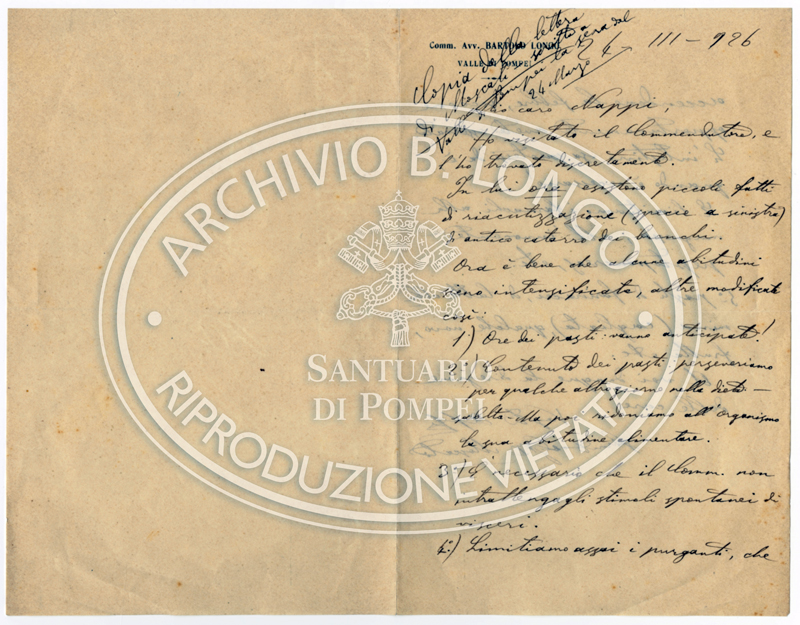 Comm. Avv. BARTOLO LONGO
VALLE DI POMPEI
24 - III - 926
Copia della lettera
di Moscati scritta a
Valle Pompei la sera del
24 Marzo
Mio caro Nappi,
Ho visitato il Commendatore, e
l'ho trovato discretamente.
In lui ora esistono piccoli fatti
di riacutizzazione (specie a sinistra)
d'antico catarro dei bronchi.
Ora è bene che alcune abitudini
sieno intensificate, altre modificate
così:
1) Ore dei pasti vanno anticipate!
2) Contenuto dei pasti: perseveriamo
per qualche altro giorno nella dieta
scelta. Ma poi ridoniamo all'organismo
la sua abitudine alimentare.
3) È necessario che il Comm. non
intrattenga gli stimoli spontanei di
visceri.
4) Limitiamo assai i purganti, che
ARCHIVIO B. LONGO
SANTUARIO
DI POMPEI
RIPRODUZIONE VIETATA